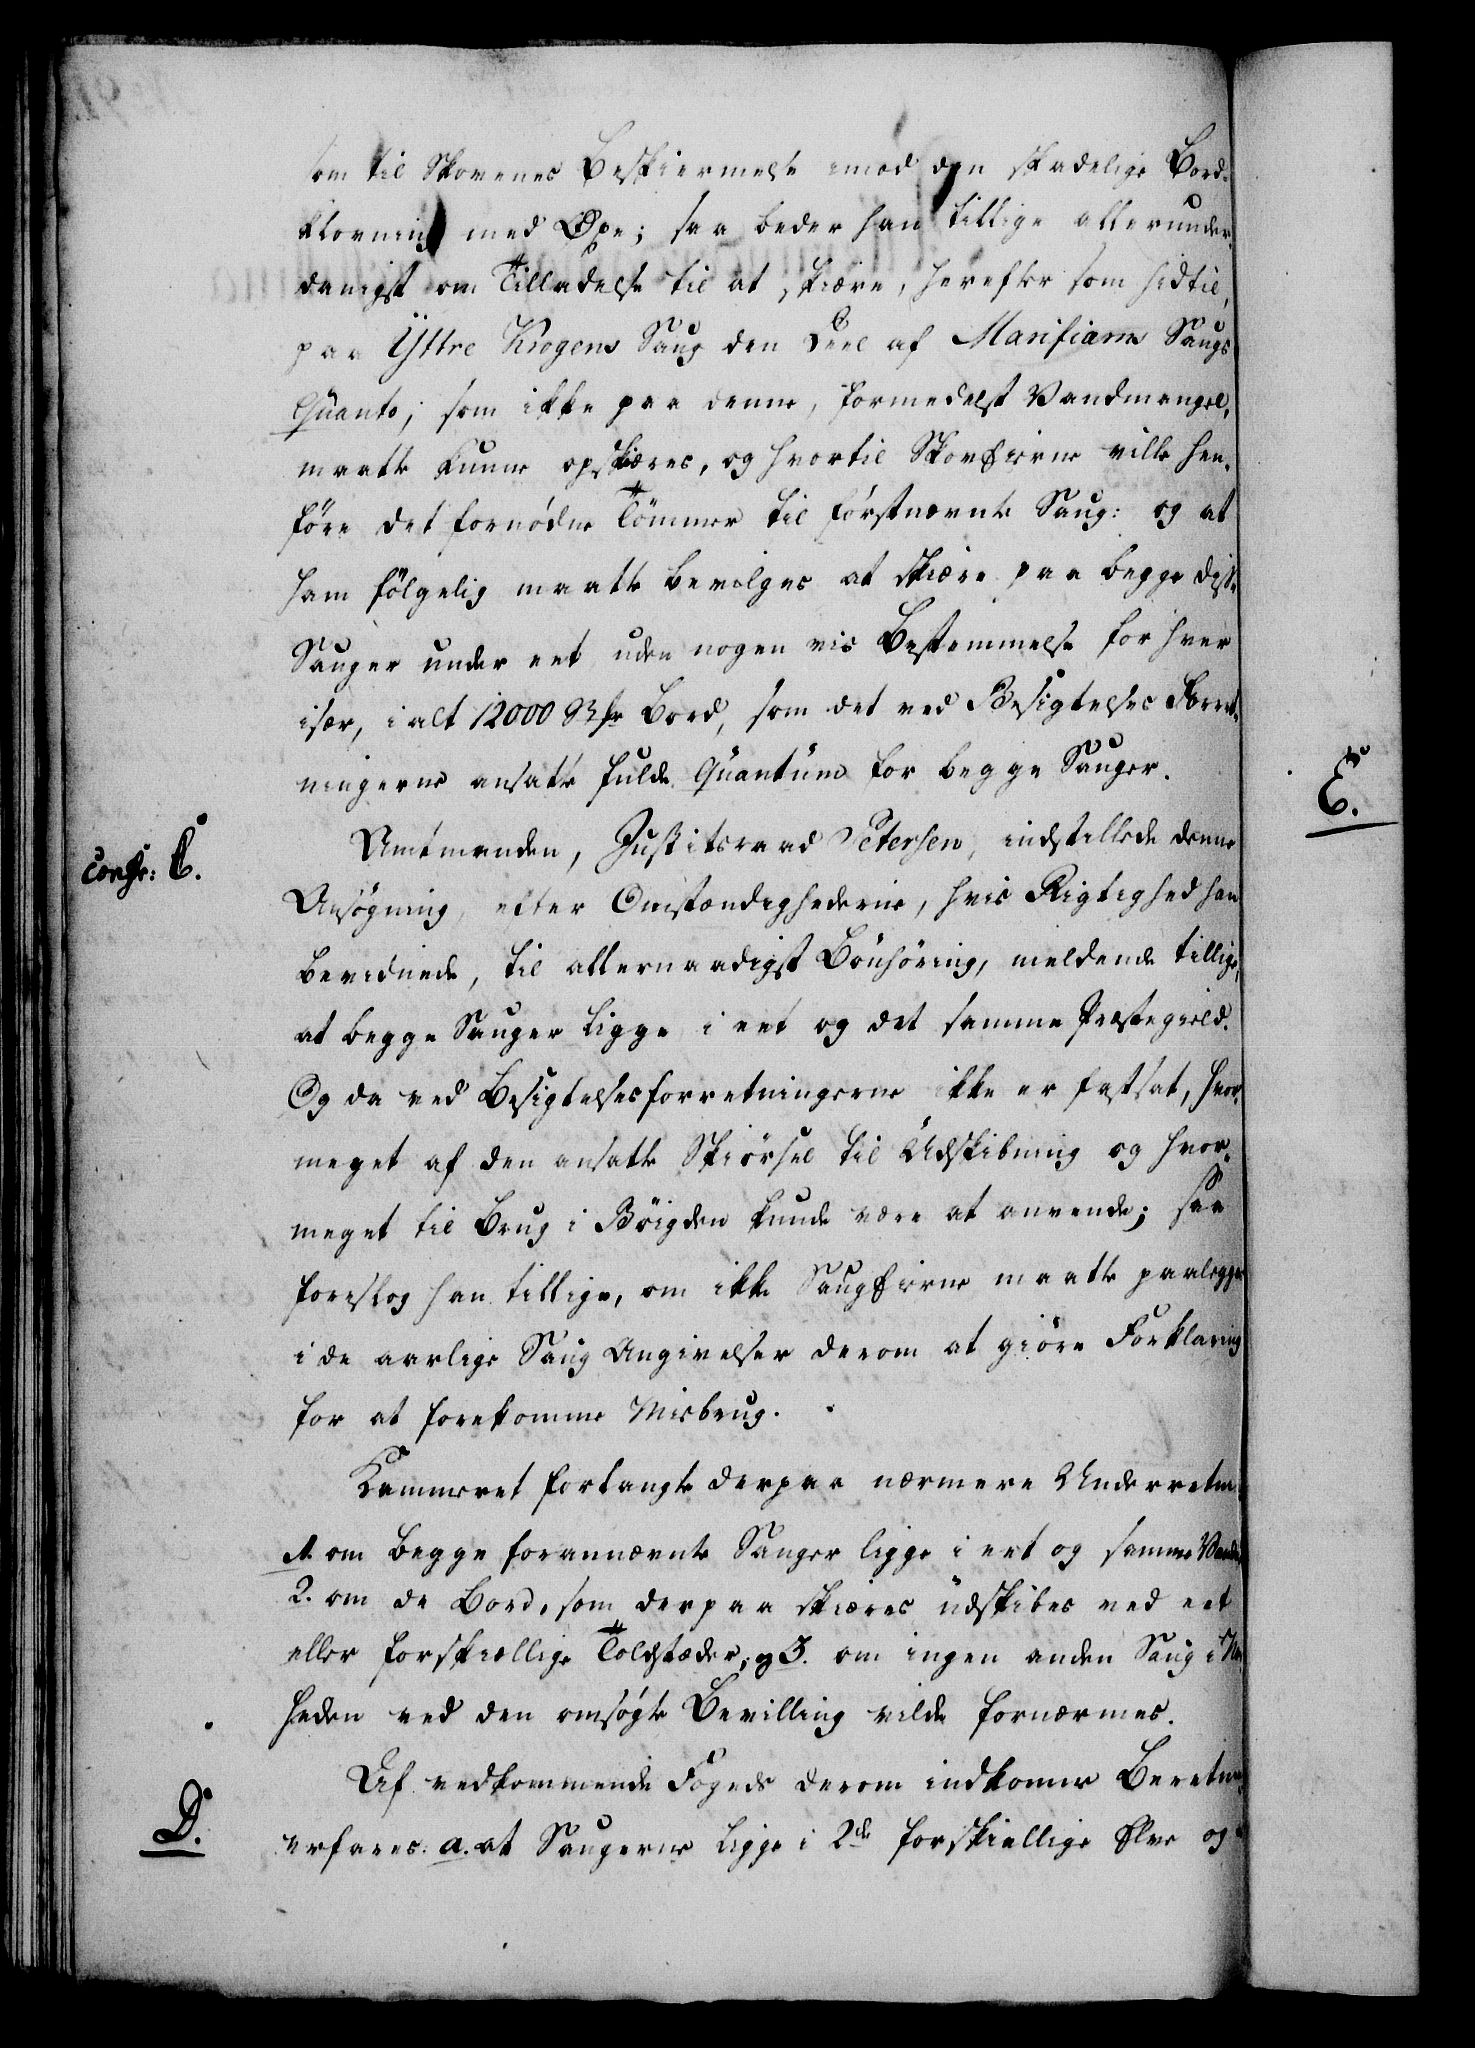 som til Skovenes Beskiermelse imod den skadelige Bord-
kløvning med Øxe; saa beder han tillige allerunder-
danigst om Tilladelse til at skiære, herefter som hidtil,
paa Yttre Krogens Saug den Deel af Marifiærns Saugs
Quanto, som ikke paa denne, formedelst Vandmangel,
maatte kunne opskiæres, og hvortil Skoveierne ville hen-
føre det fornødne Tømmer til førstnævnte Saug: og at
ham følgelig maatte bevilges at skiære paa begge disse
Sauger under eet uden nogen vis Bestemmelse for hver
især, i alt 12000 Stkr Bord, som det ved Besigtelses Forret-
ningerne ansatte fulde Quantum for begge Sauger.
Amtmanden, Justitsraad Petersen, indstillede denne
confr: C.
Ansøgning, efter Omstændighederne, hvis Rigtighed han
bevidnede, til allernaadigst Bønhøring, meldende tillige,
at begge Sauger ligge i eet og det samme Præstegield.
Og da ved Besigtelsesforretningerne ikke er fastsat, hvor-
meget af den ansatte Skiørsel til Udskibning og hvor-
meget til Brug i Bøigden kunde være at anvende; saa
foreslog han tillige, om ikke Saugeierne maatte paalegges
i de aarlige Saug Angivelser derom at giøre Forklaring
for at forekomme Misbrug.
Kammeret forlangte derpaa nærmere Underretn
1. om begge forannævnte Sauger ligge i eet og samme Vand
2. om de Bord, som derpaa skiæres udskibes ved eet
eller forskiællige Toldstæder, og 3. om ingen anden Saug i Nær
heden ved den ansøgte Bevilling vilde fornærmes.
Af vedkommende Fogeds derom indkomne Beretn
D.
erfares: a. at Saugerne ligge i 2de forskiellige Elve og
E.